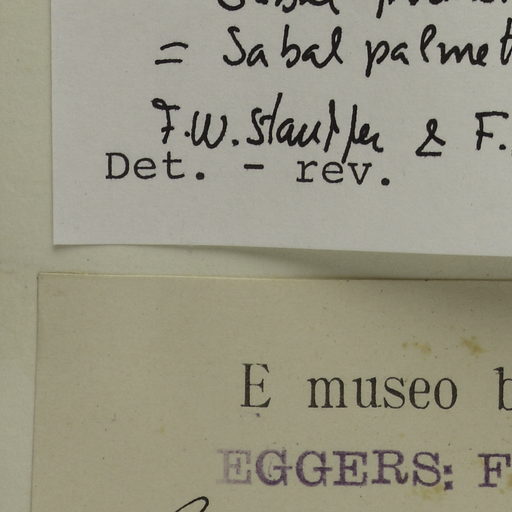 Sabal
= Sabal palmet
F.W. Stauffer & F.
Det. - rev.
E museo b
EGGERS: F